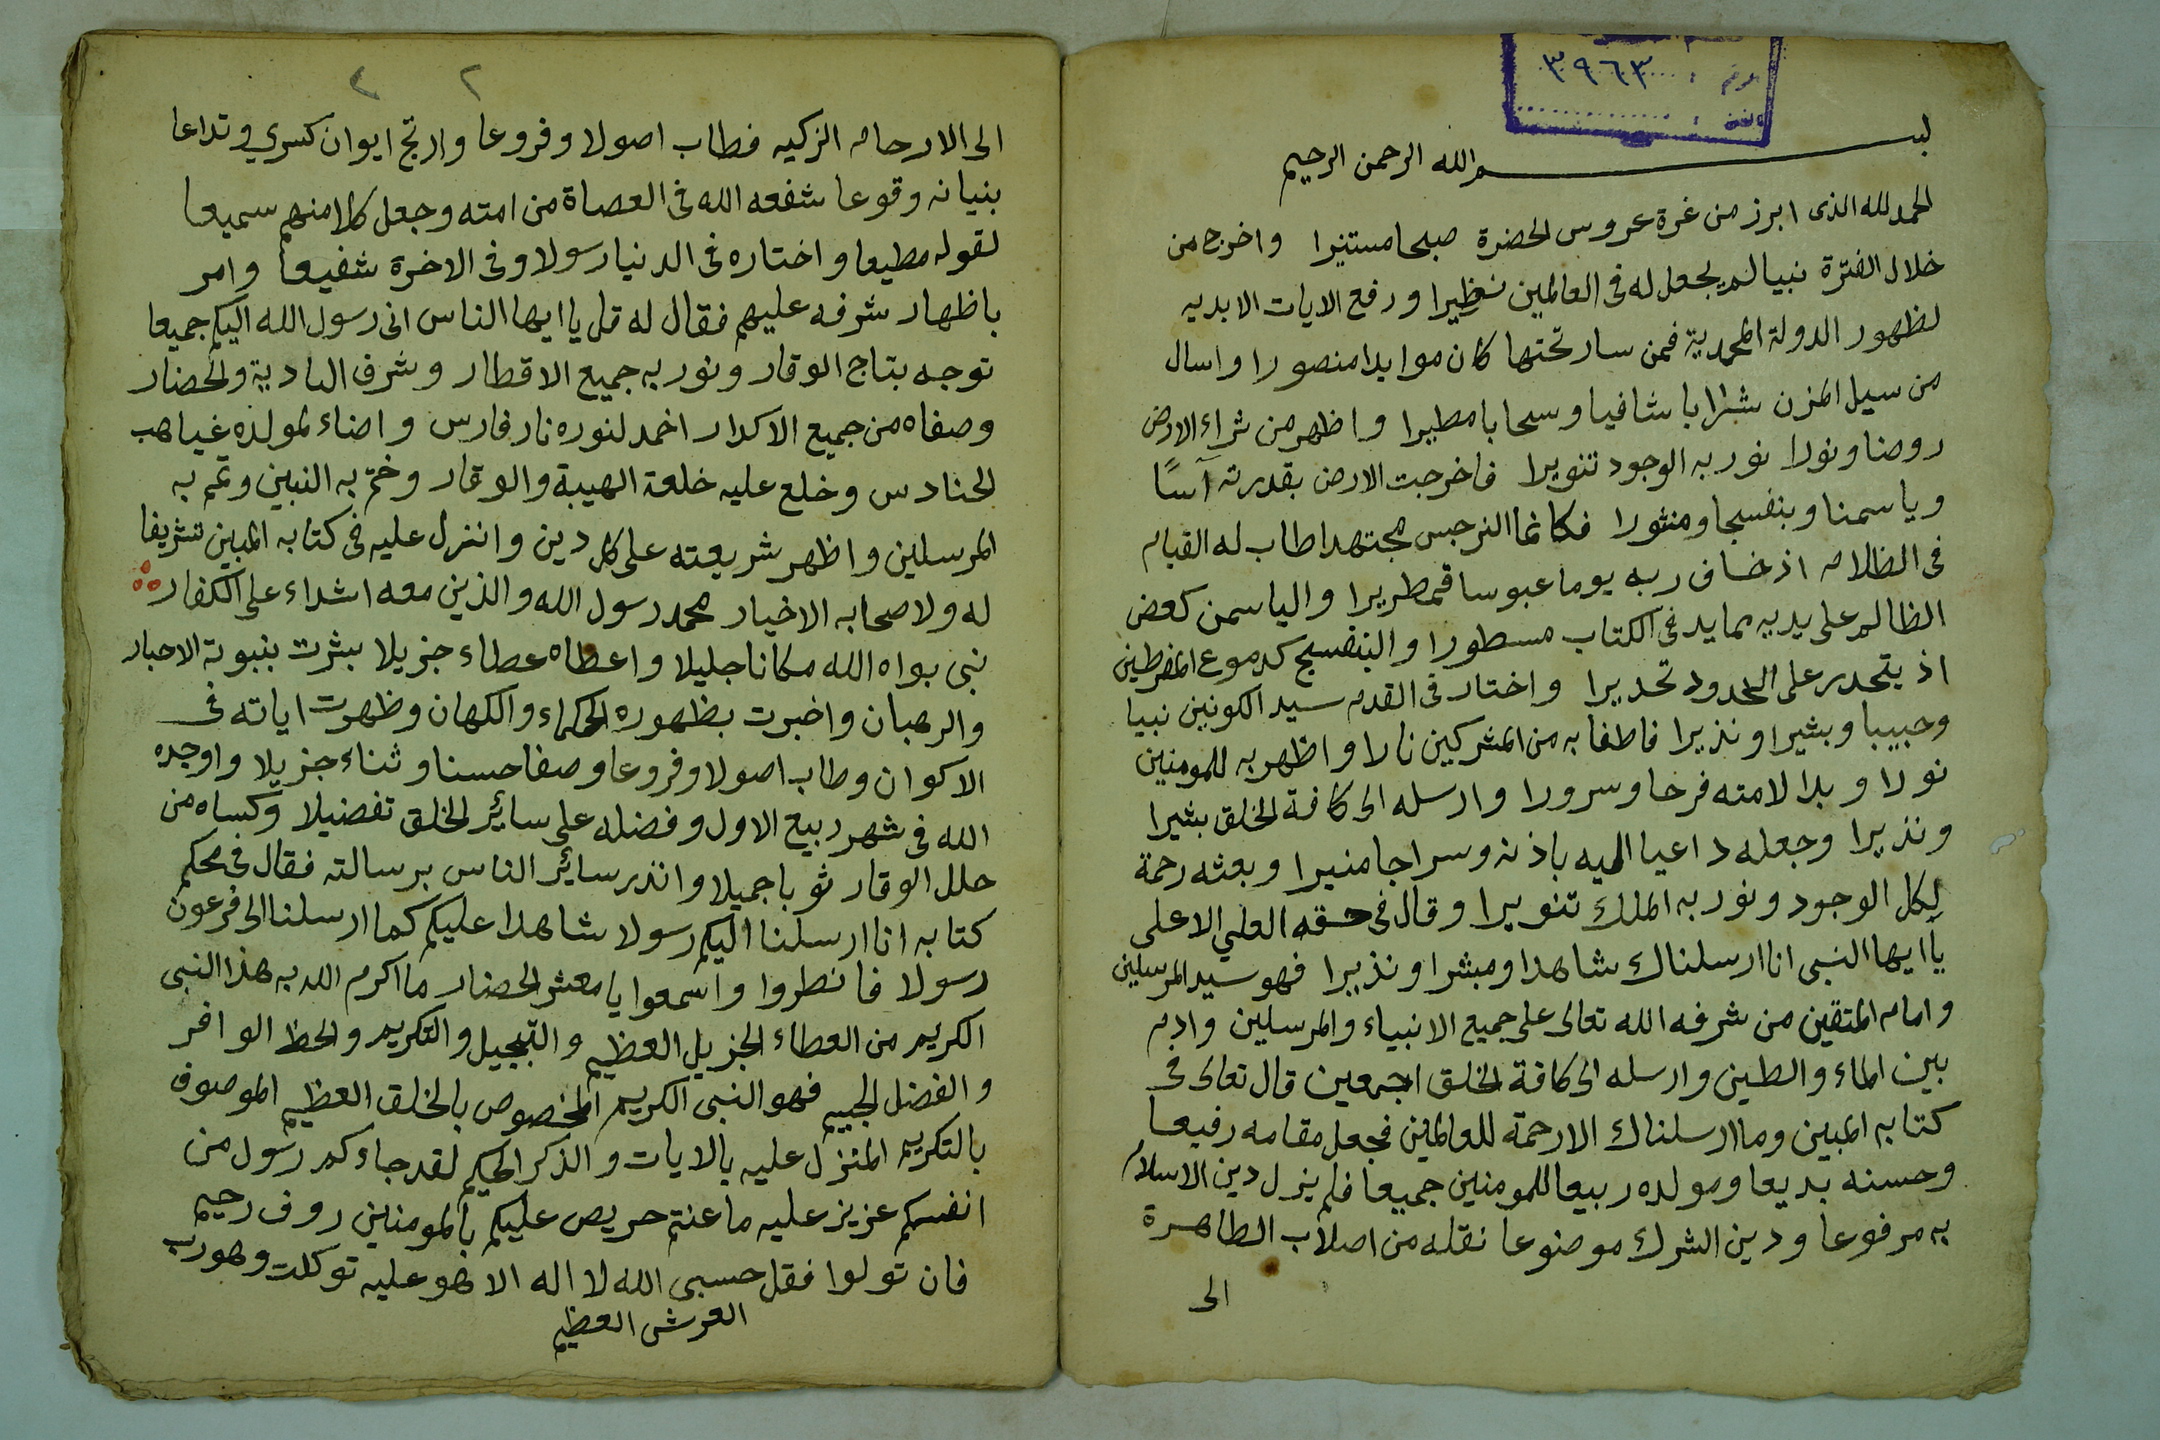 ٣٩٦٣
بسم الله الرحمن الرحيم
الحمد لله الذى ابرز من غرة عروس الحضرة صبحا مستنيرا واخرج من
خلال الفترة نبيا لم يجعل له فى العالمين نظيرا ورفع الايات الابديه
لظهور الدولة المحمدية فمن سار تحتها كان موايدا منصورا واسال
من سيل المزن شرابا شافيا وسحابا مطيرا واظهر من ثراء الارض
روضا ونورا نور به الوجود تنويرا فاخرجت الارض بقدرته آسًا
وياسمنا وبنفسجا ومنثورا فكانما النرجس مجتهدا طاب له القيام
فى الظلام اذ خاف ربه يوما عبوسا قمطريرا والياسمن كعض
الظالم على يديه بما يد فى الكتاب مسطورا والبنفسج كدموع المفرطين
اذ يتحدر على الخدود تحديرا واختار فى القدم سيد الكونين نبيا
وحبيبا وبشيرا ونذيرا فاطفا به من المشركين نارا واظهر به للمومنين
نورا وبدا لامته فرحا وسرورا وارسله الى كافة الخلق بشيرا
ونذيرا وجعله داعيا اليه باذنه وسراجا منيرا وبعثه رحمة
لكل الوجود ونور به الملك تنويرا وقال فى حقه العلي الاعلى
يآايها النبى انا ارسلناك شاهدا ومبشرا ونذيرا فهو سيد المرسلين
وامام المتقين من شرفه الله تعالى على جميع الانبياء والمرسلين وادم
بين الماء والطين وارسله الى كافة الخلق اجمعين قال تعالى فى
كتابه المبين وما ارسلناك الا رحمة للعالمين فجعل مقامه رفيعا
وحسنه بديعا ومولده ربيعا للمومنين جميعا فلم يزل دين الاسلام
به مرفوعا ودين الشرك موضوعا نقله من اصلاب الطاهرة
الى
٢
الى الارحام الزكيه فطاب اصولا وفروعا وارتج ايوان كسري وتداعا
بنيانه وقوعا شفعه الله فى العصاة من امته وجعل كلا منهم سميعا
لقوله مطيعا واختاره فى الدنيا رسولا وفى الاخرة شفيعا وامر
باظهار شرفه عليهم فقال له قل يا ايها الناس انى رسول الله اليكم جميعا
توجه بتاج الوقار ونور به جميع الاقطار وشرف البادية والحضار
وصفاه من جميع الاكدار اخمد لنوره نار فارس واضاء لمولده غياهب
الحنادس وخلع عليه خلعة الهيبة والوقار وختم به النبين وتمم به
المرسلين واظهر شريعته على كل دين وانزل عليه فى كتابه المبين تشريفا
له ولاصحابه الاخيار محمد رسول الله والذين معه اشداء على الكفار
نبى بواه الله مكانا جليلا واعطاه عطاء جزيلا بشرت بنبوته الاحبار
والرهبان واخبرت بظهوره الحكماء والكهان وظهرت اياته فى
الاكوان وطاب اصولا وفروعا وصفا حسنا وثناء جزيلا واوجده
الله فى شهر ربيع الاول وفضله على سائر الخلق تفضيلا وكساه من
حلل الوقار ثوبا جميلا وانذر سائر الناس برسالته فقال فى محكم
كتابه انا ارسلنا اليكم رسولا شاهدا عليكم كما ارسلنا الى فرعون
رسولا فانظروا واسمعوا يا معشر الحضار ما اكرم الله به هذا النبى
الكريم من العطاء الجزيل العظيم والتبجيل والتكريم والحظ الوافر
والفضل الجيم فهو النبى الكريم المخصوص بالخلق العظيم الموصوف
بالتكريم المنزل عليه بالايات والذكر الحكيم لقد جاءكم رسول من
انفسكم عزيز عليه ما عنتم حريص عليكم بالمومنين روف رحيم
فان تولوا فقل حسبى الله لا اله الا هو عليه توكلت وهو رب
العرش العظيم